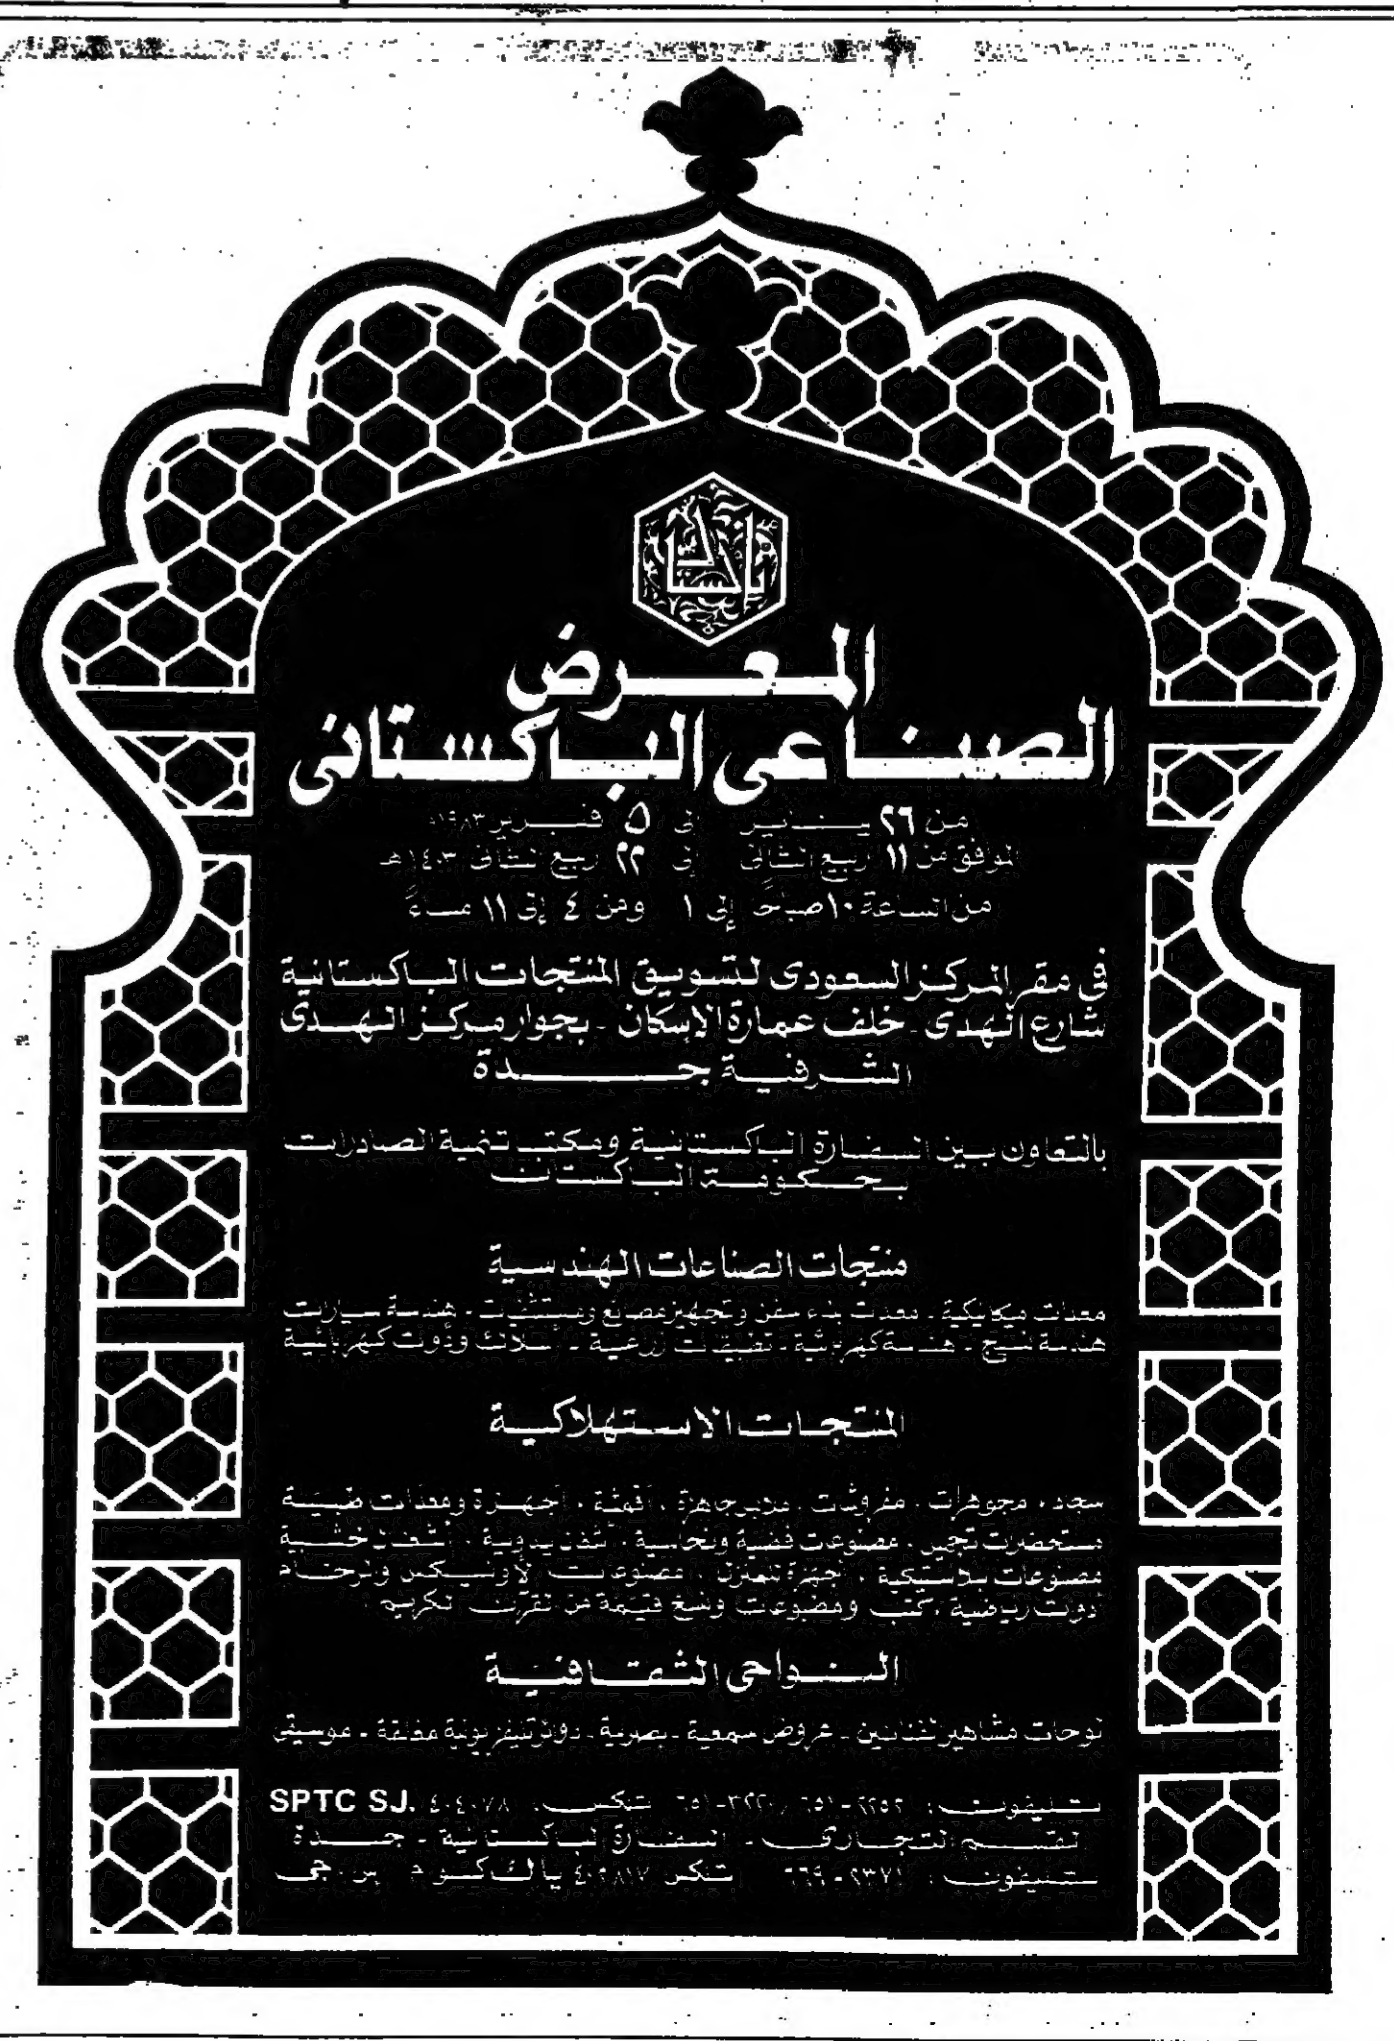 المعرض
الصناعى الباكستانى
من ٢٦ يناير إلى ٥ فبراير ١٩٨٣م
الموافق من ١١ ربيع الثانى إلى ٢٢ ربيع الثانى ١٤٠٣ هـ
من الساعة ١٠ صباحًا إلى ١ ومن ٤ إلى ١١ مساءً
فى مقر المركز السعودى لتسويق المنتجات الباكستانية
شارع الهدى - خلف عمارة الإسكان - بجوار مركز الهدى
الشرفية جدة
بالتعاون بين السفارة الباكستانية ومكتب تنمية الصادرات
بحكومة الباكستان
منتجات الصناعات الهندسية
معدات ميكانيكية - معدات بناء سفن وتجهيز مصانع ومستشفيات - هندسة سيارات
هندسة نسيج - هندسة كهربائية - تطبيقات زراعية - أسلاك وأدوات كهربائية
المنتجات الاستهلاكية
سجاد ، مجوهرات ، مفروشات ، ملابس جاهزة ، أقمشة ، أجهزة ومعدات طبية
مستحضرات تجميل ، مصنوعات فضية ونحاسية ، أشغال يدوية ، أشغال خشبية
مصنوعات بلاستيكية ، أجهزة للمنزل ، مصنوعات الأونيكس والرخام
أدوات رياضية ، كتب ومطبوعات ونسخ قيمة من القرآن الكريم
النواحى الثقافية
لوحات مشاهير الفنانين - عروض سمعية - بصرية - دوائر تليفزيونية مغلقة - موسيقى
تليفون : تلكس : SPTC SJ.
القسم التجارى - السفارة الباكستانية - جدة
تليفون : ٢٣٧١-٦٦٩ تلكس